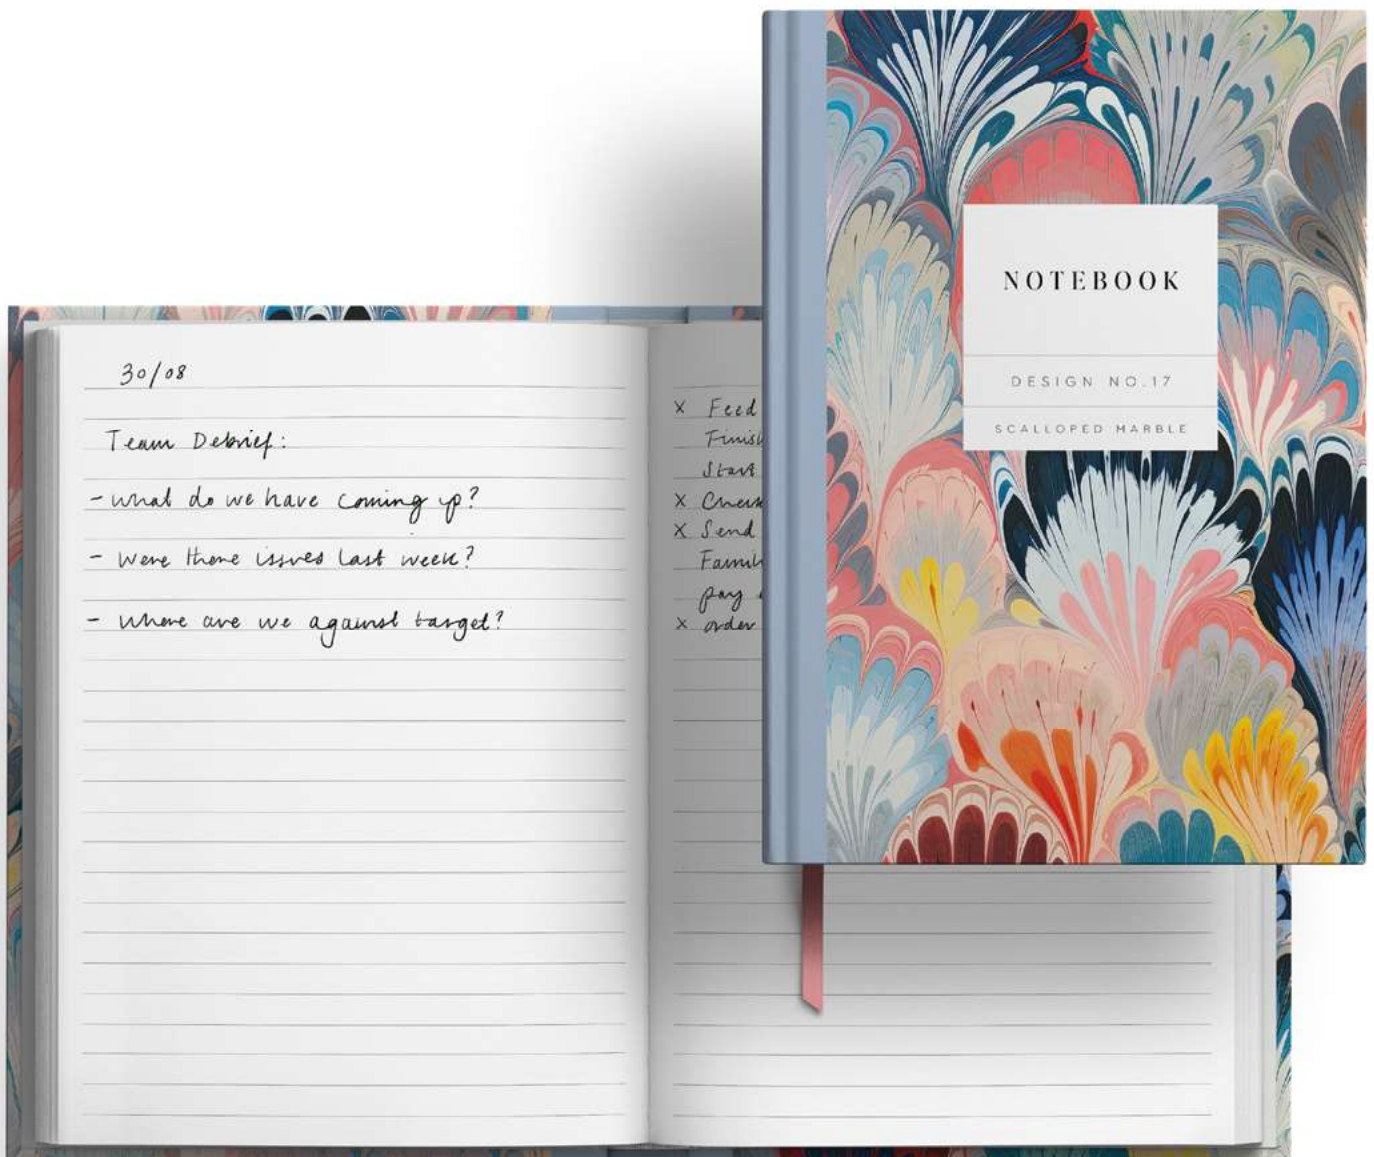 30/08
Team Debrief:
- what do we have coming up?
- were there issues last week?
- where are we against target?
x Feed
Start
x Send
pay
x order
NOTEBOOK
DESIGN NO.17
SCALLOPED MARBLE